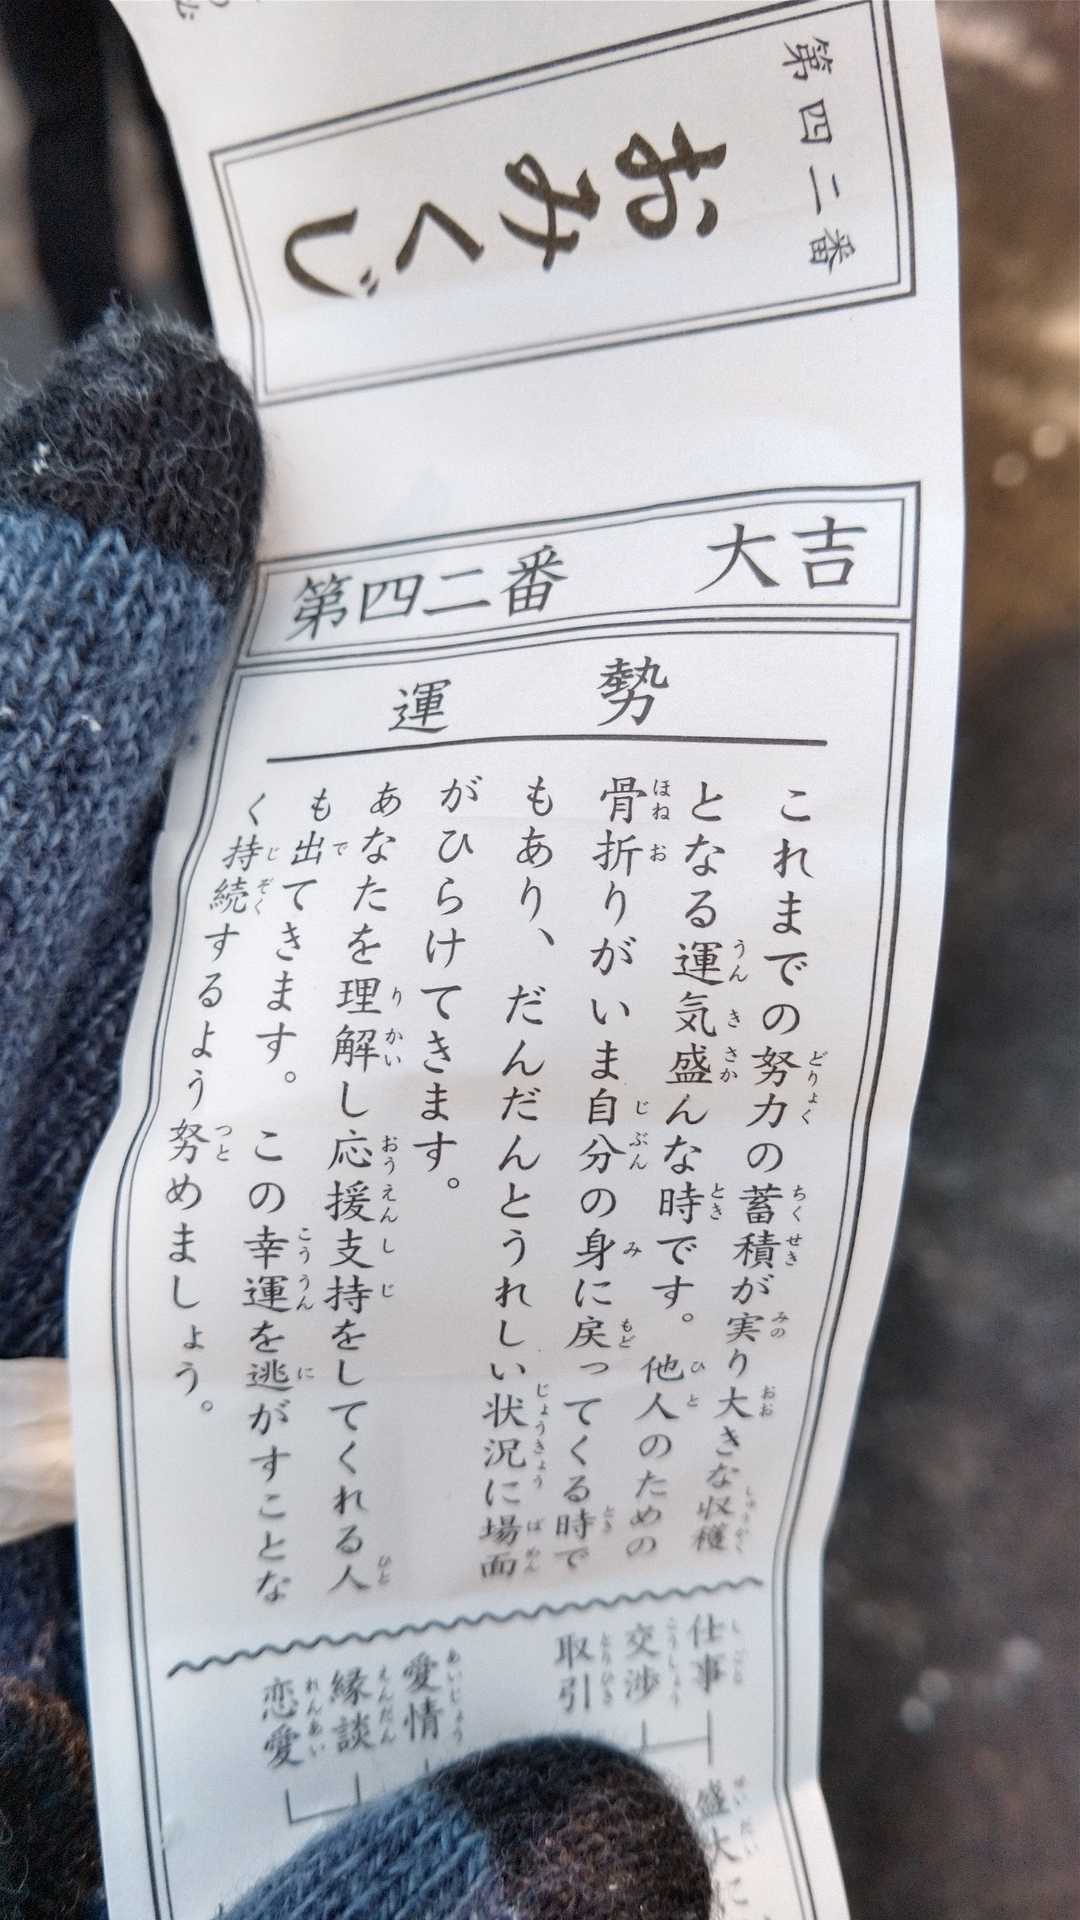 第四二番
おみくじ
第四二番 大吉
運勢
これまでの努力の蓄積が実り大きな収穫
となる運気盛んな時です。他人のための
骨折りがいま自分の身に戻ってくる時で
もあり、だんだんとうれしい状況に場面
がひらけてきます。
あなたを理解し応援支持をしてくれる人
も出てきます。この幸運を逃がすことな
く持続するよう努めましょう。
仕事
交渉
取引
盛大に
愛情
縁談
恋愛